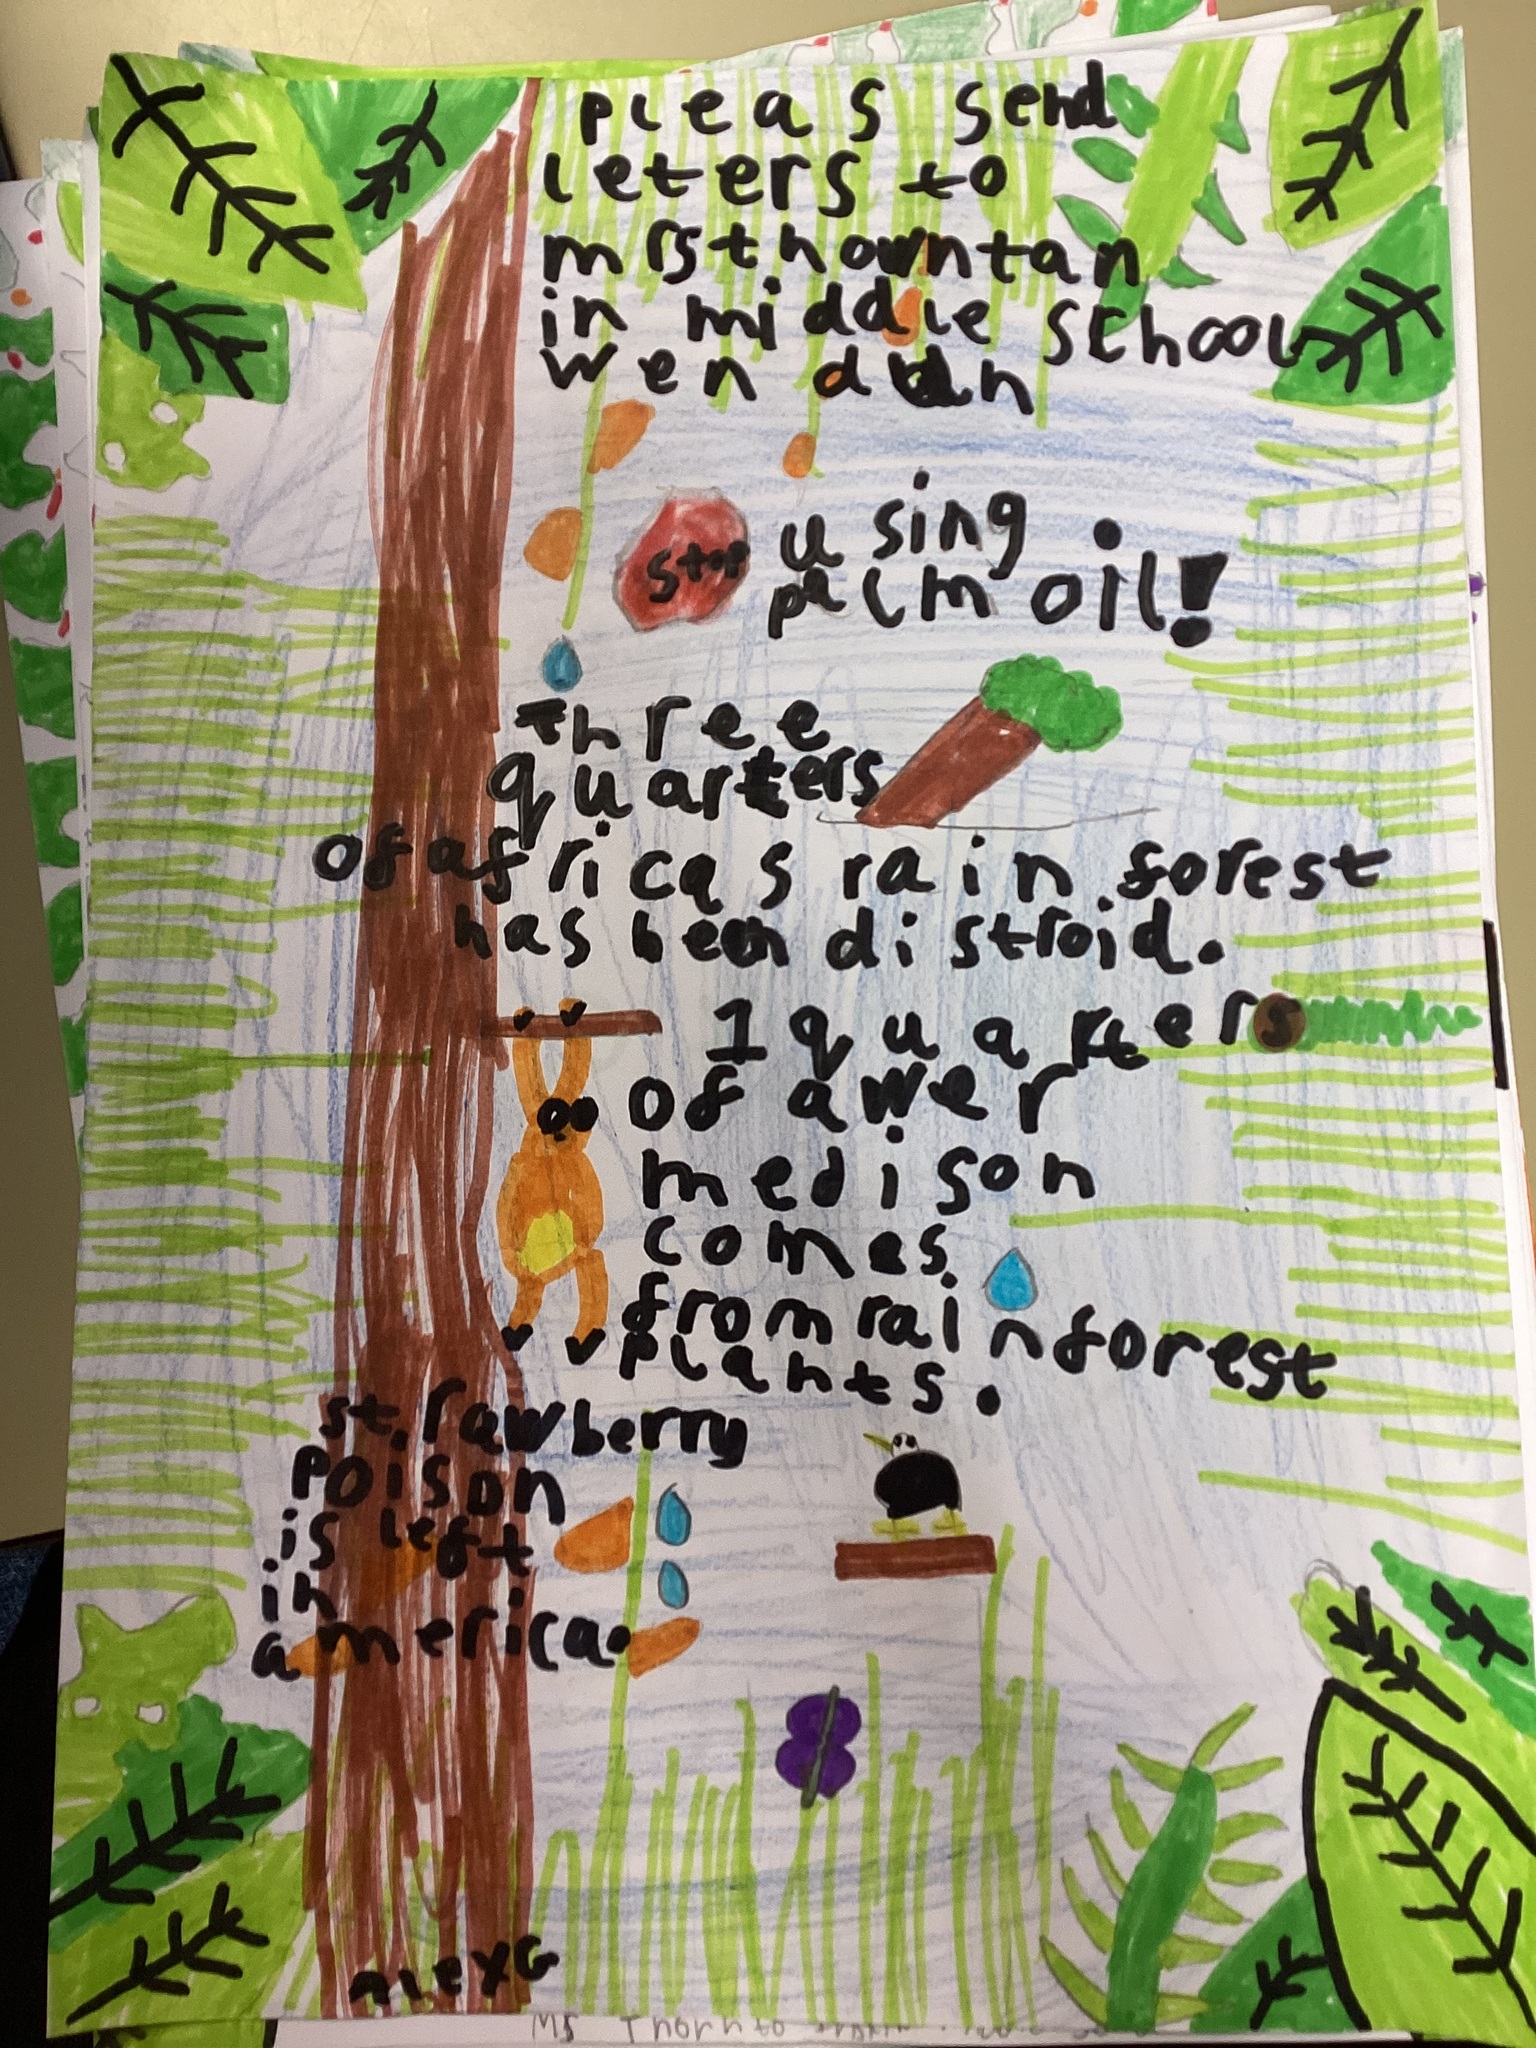 pleas send
leters to
mrsthowntan
in middle school
wen dun
stop using
palm oil!
three
quarters
of africas rain forest
has been distroid.
1 quarters
of awer
medison
comes
from rainforest
plants.
strawberry
poison
is left
in
america.
ALEXG
Ms Thornto